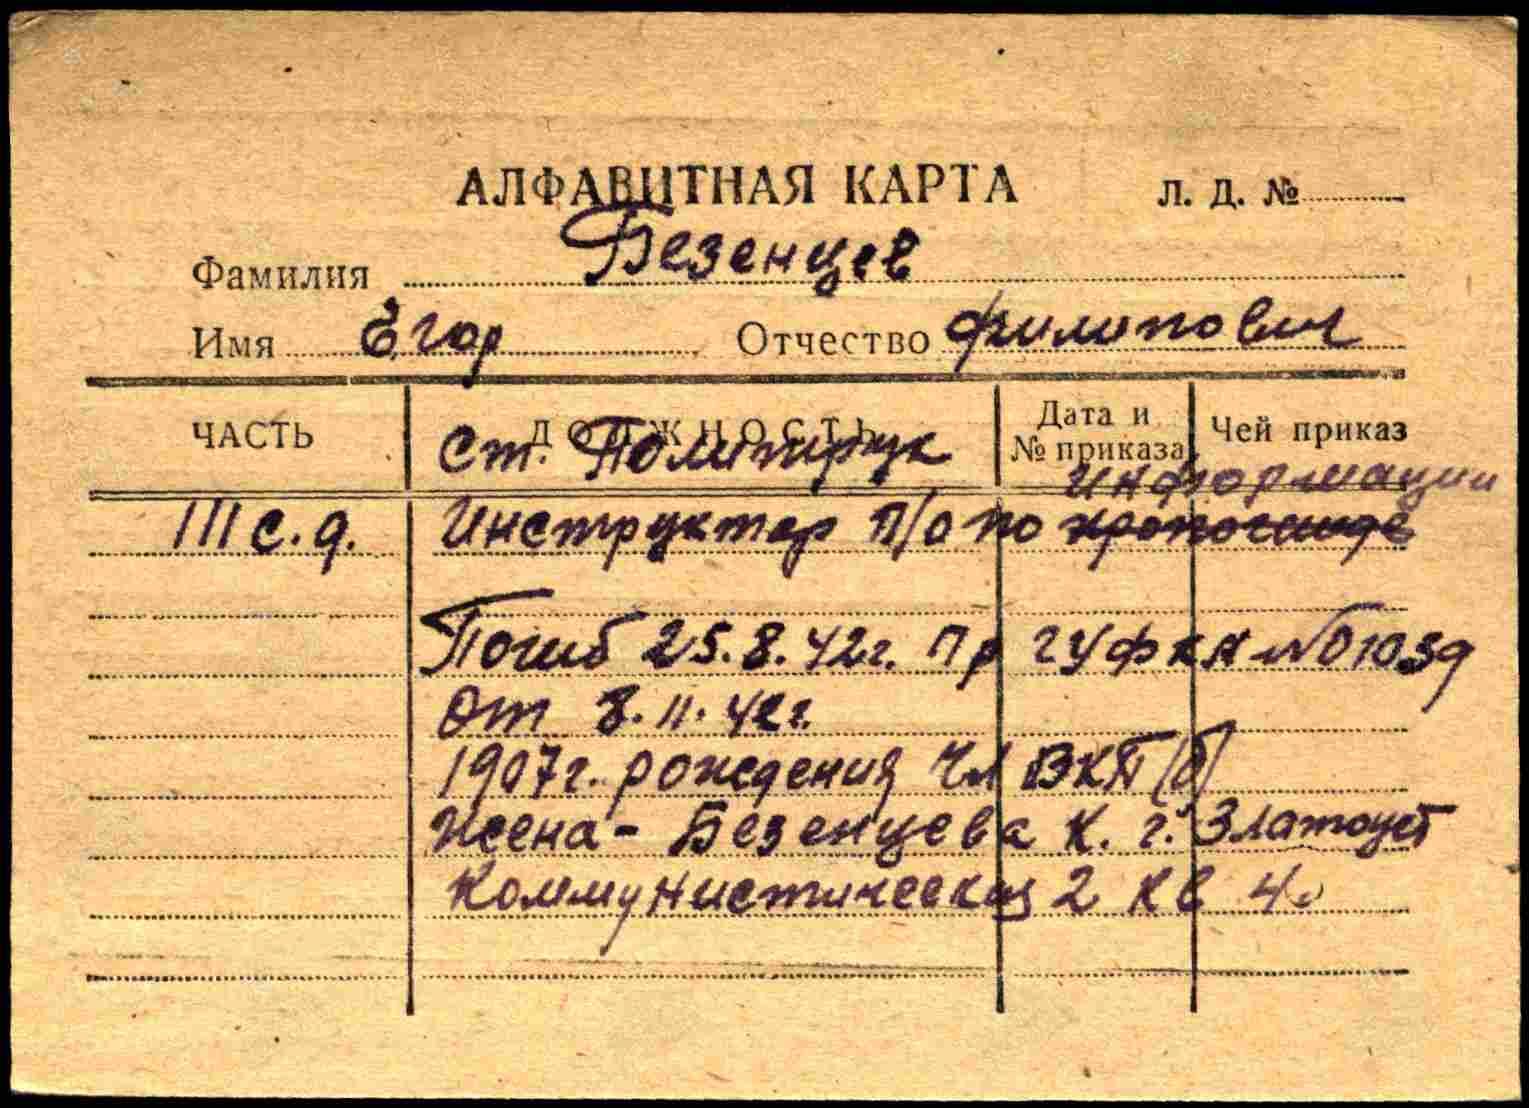 АЛФАВИТНАЯ КАРТА Л. Д. №
Фамилия Безенцев
Имя Егор Отчество Филипович
ЧАСТЬ ДОЛЖНОСТЬ Дата и № приказа Чей приказ
ст. Политрук
информации
111 с.д. Инструктор П/о по
Погиб 25.8.42г. Пр ГУФКА №01039
От 8.11.42г.
1907г. рождения Чл ВКП(б)
Жена - Безенцева К. г. Златоуст
Коммунистическая 2 кв 4